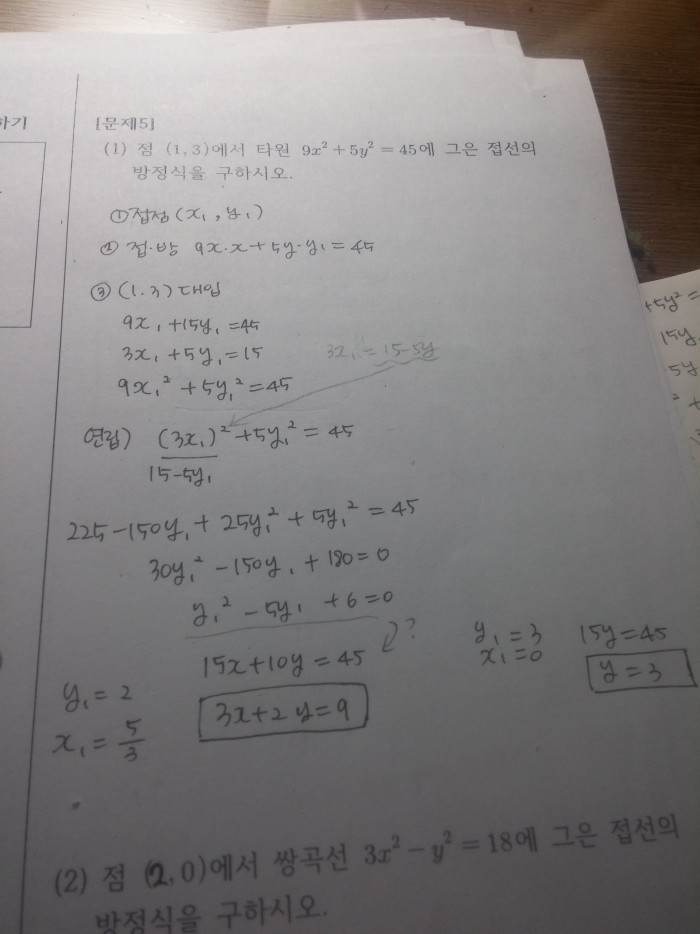 하기
[문제5]
(1) 점 (1, 3)에서 타원 9x² + 5y² = 45에 그은 접선의
방정식을 구하시오.
① 접점 (x₁, y₁)
② 접·방 9x·x + 5y·y₁ = 45
③ (1.3) 대입
9x₁ + 15y₁ = 45
3x₁ + 5y₁ = 15 3x₁ = 15-5y
9x₁² + 5y₁² = 45
연립) (3x₁)² + 5y₁² = 45
15-5y₁
225 - 150y₁ + 25y₁² + 5y₁² = 45
30y₁² - 150y₁ + 180 = 0
y₁² - 5y₁ + 6 = 0
?
15x + 10y = 45
3x + 2y = 9
y₁ = 2
x₁ = 5/3
y₁ = 3 15y = 45
x₁ = 0 y = 3
+5y² =
15y
5y
(2) 점 (2, 0)에서 쌍곡선 3x² - y² = 18에 그은 접선의
방정식을 구하시오.